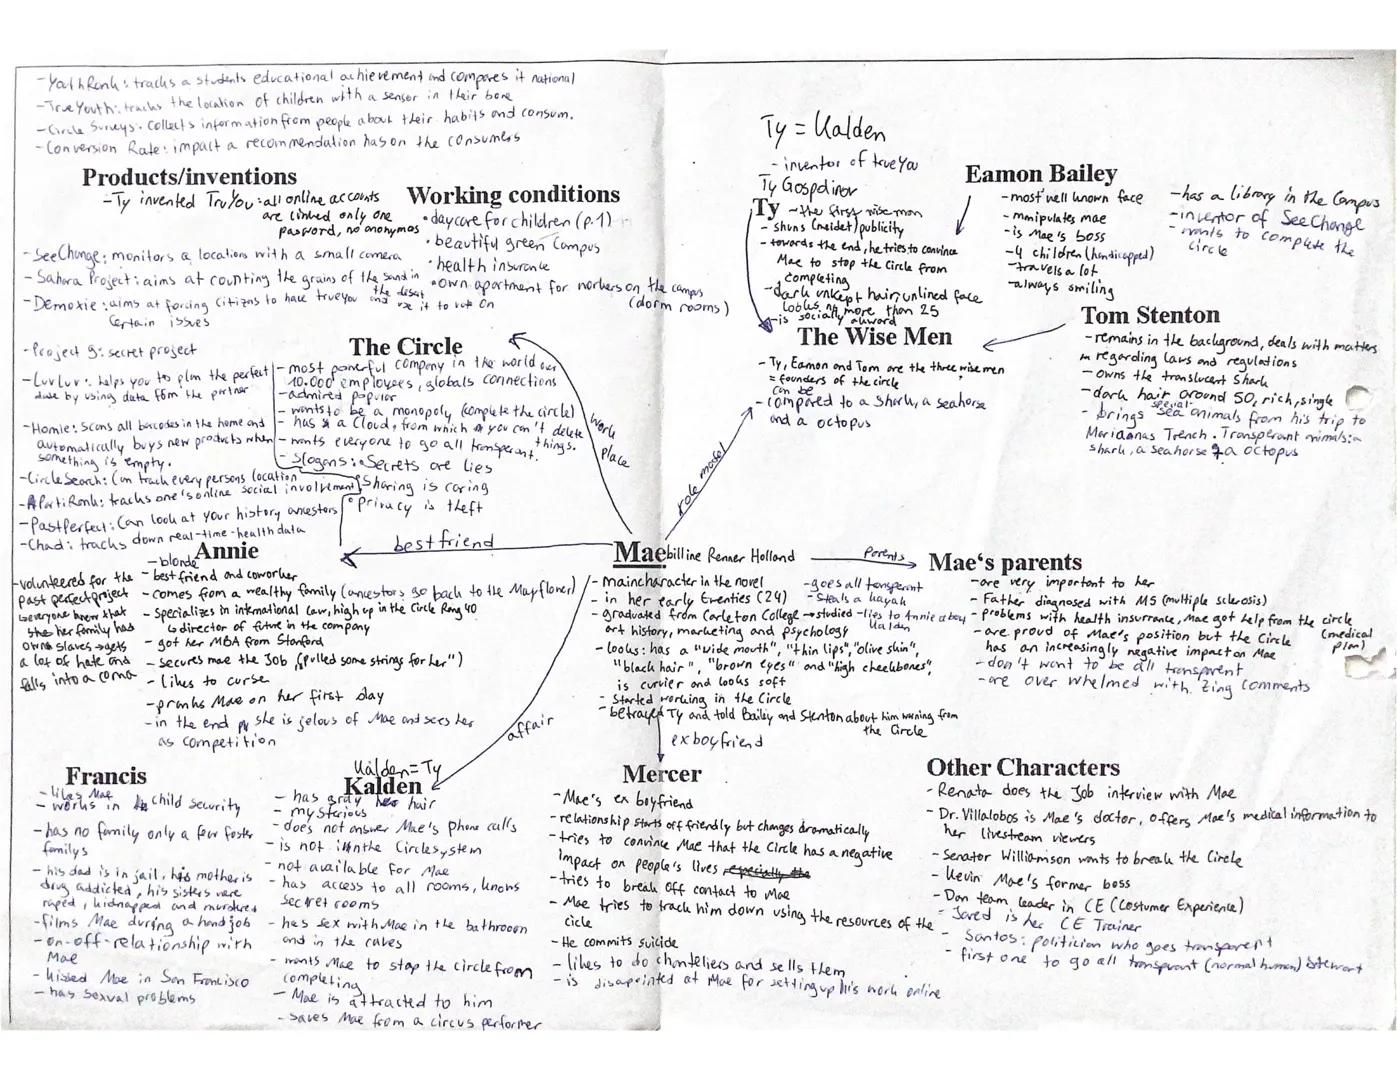 - YouthRank: tracks a students educational achievement and compares it national
- TrueYouth: tracks the location of children with a sensor in their bone
- Circle Surveys: Collects information from people about their habits and consum.
- Conversion Rate: impact a recommendation has on the consumers
Products/inventions
- Ty invented TruYou: all online accounts
are linked only one
pasword, no anonymos
- SeeChange: monitors a locations with a small camera
- Sahara Project: aims at counting the grains of the sand in
the desat
- Demoxie: aims at forcing citizns to have trueyou and use it to vote on
Certain issues
- Project 9: secret project
- LuvLuv: helps you to plan the perfect
date by using data from the partner
- Homie: Scans all barcodes in the home and
automatically buys new products when
something is empty.
- CircleSearch: Can track every persons location
- PartiRank: tracks one's online social involvement
- PastPerfect: Can look at your history ancestors
- Chad: tracks down real-time-health data
Working conditions
• daycare for children (p.1)
• beautiful green Campus
• health insurance
• own apartment for workers on the campus
(dorm rooms)
The Circle
- most powerful company in the world over
10.000 employees, globals connections
- admired popular
- wants to be a monopoly (complete the circle)
- has a Cloud, from which you can't delete
things.
- wants everyone to go all transperant.
- Slogans: • Secrets are lies
• Sharing is caring
• privacy is theft
work place
Ty = Kalden
- inventor of trueYou
Ty Gospdinov
Ty
- the first wise man
- shuns (meidet) publicity
- towards the end, he tries to convince
Mae to stop the Circle from
completing
- dark unkept hair, unlined face
looks no more than 25
- is socially akward
Eamon Bailey
- most well known face
- mnipulates mae
- is Mae's boss
- 4 children (handicapped)
- travels a lot
- always smiling
- has a library in the Campus
- inventor of SeeChange
- wants to complete the
circle
The Wise Men
- Ty, Eamon and Tom are the three wise men
= founders of the circle
can be
- compared to a Shark, a seahorse
and a octopus
Tom Stenton
- remains in the background, deals with matters
regarding laws and regulations
- owns the translucent Shark
- dark hair around 50, rich, single
special
- brings sea animals from his trip to
Marianas Trench. Transperant animals: a
shark, a seahorse & a octopus
role model
best friend
Annie
- blonde
- best friend and coworker
- comes from a wealthy family (ancestors go back to the Mayflower)
- Specializes in international law, high up in the Circle Rang 40
director of future in the company
- got her MBA from Stanford
- secures mae the Job ("pulled some strings for her")
- likes to curse
- pranks Mae on her first day
- in the end she is jelous of Mae and sees her
as competition
- volunteered for the
past perfect project
everyone knew that
her family had
owns slaves → gets
a lot of hate and
falls into a coma
Mae billine Renner Holland
- maincharacter in the novel
- in her early twenties (24)
- graduated from Carleton College → studied
art history, marketing and psychology
- looks: has a "wide mouth", "thin lips", "olive skin",
"black hair", "brown eyes" and "high cheekbones",
is curvier and looks soft
- Started working in the Circle
- betrayed Ty and told Bailey and Stenton about him warning from
the Circle
- goes all transperant
- Steals a kayak
- lies to Annie about
Kalden
Parents
Mae's parents
- are very important to her
- Father diagnosed with MS (multiple sclerosis)
- problems with health insurrance, Mae got help from the circle
(medical
plan)
- are proud of Mae's position but the Circle
has an increasingly negative impact on Mae
- don't want to be all transparent
- are over whelmed with Zing comments
affair
ex boyfriend
Francis
- likes Mae
- works in child security
- has no family only a few foster
familys
- his dad is in jail, his mother is
drug addicted, his sisters were
raped, kidnapped and murdered
- films Mae during a handjob
- on-off-relationship with
Mae
- kissed Mae in San Francisco
- has sexual problems
Kalden=Ty
Kalden
- has gray hair
- mysterious
- does not answer Mae's phone calls
- is not in the Circlesystem
- not available for Mae
- has access to all rooms, knows
secret rooms
- has sex with Mae in the bathroom
and in the caves
- wants Mae to stop the circle from
completing
- Mae is attracted to him
- saves Mae from a circus performer
Mercer
- Mae's ex boyfriend
- relationship starts off friendly but changes dramatically
- tries to convince Mae that the Circle has a negative
impact on people's lives especially the
- tries to break off contact to Mae
- Mae tries to track him down using the resources of the
cicle
- He commits suicide
- likes to do chanteliers and sells them
- is disapointed at Mae for setting up his work online
Other Characters
- Renata does the Job interview with Mae
- Dr. Villalobos is Mae's doctor, offers Mae's medical information to
her livestream viewers
- Senator Williamson wants to break the Circle
- Kevin Mae's former boss
- Dan team leader in CE (Costumer Experience)
- Jared is her CE Trainer
- Santos: politician who goes transparent
- first one to go all transparent (normal human) Stewart